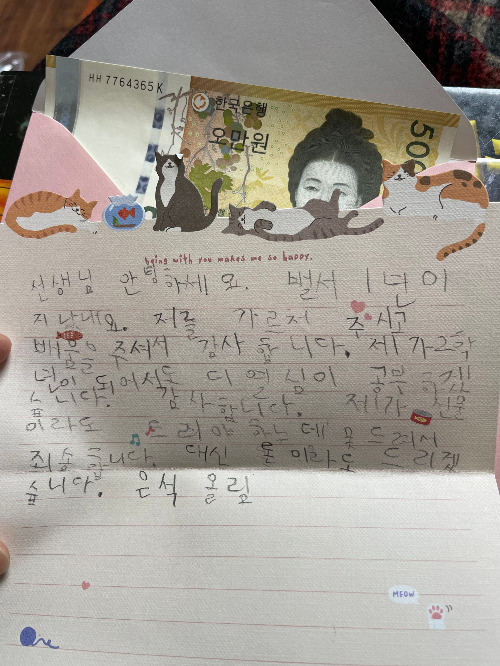 HH 7764365 K
한국은행
오만원
500
being with you makes me so happy.
선생님 안녕하세요. 벌써 1년이
지났네요. 저를 가르처 주시고
배움을 주셔서 감사합니다. 제가 2학
년이 되어서도 더 열심이 공부하겠
습니다. 감사합니다. 제가 선물
이라도 드려야 하는데 못 드려서
죄송합니다. 대신 돈이라도 드리겠
습니다. 은석 올림
MEOW